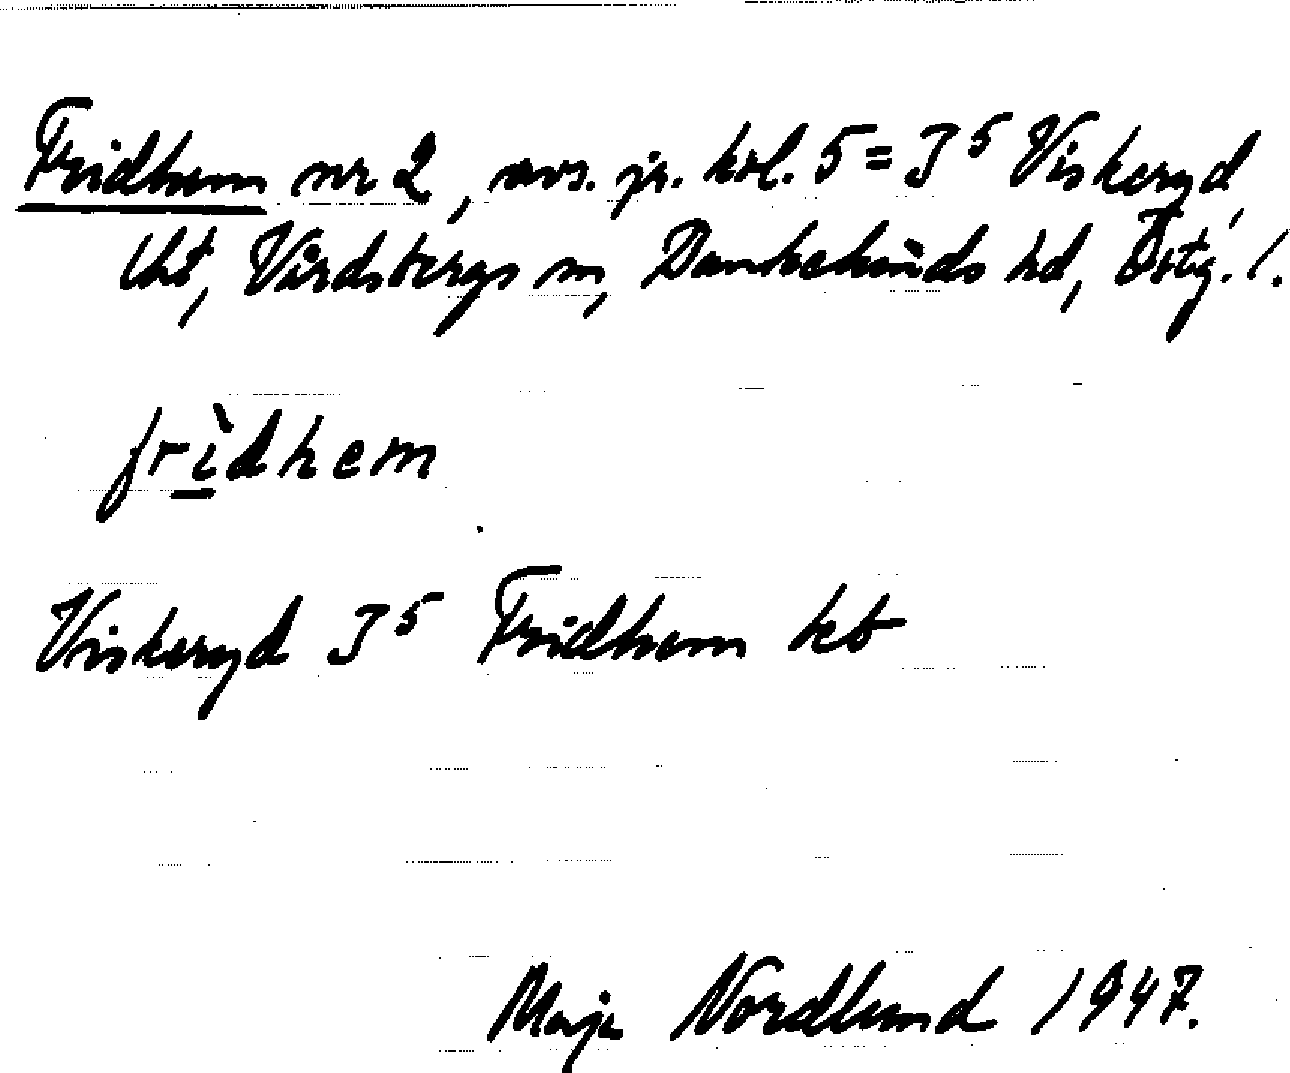 Fridhem nr 2, avs. jr. kol. 5 = J⁵ Viskeryd,
lht, Vårdsbergs sn, Bankekinds hd, Östg. l.
frìdhem
Viskeryd J⁵ Fridhem kb
Maja Nordlund 1947.